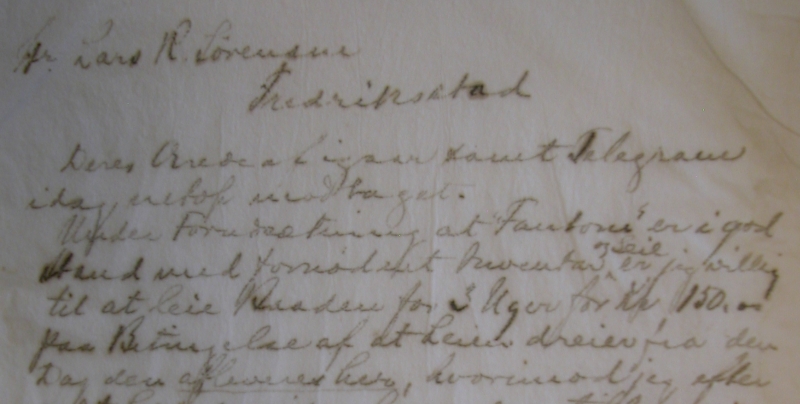 Hr. Lars R. Sörensen
Fredriksstad
Deres Ærede af igaar samt Telegram
idag netop modtaget.
Under Forudsætning at "Fantom" er i god
Stand med fornødent Inventar, og Seile er jeg villig
til at leie Baaden for 3 Uger for Kr 150.
paa Betingelse af at Leien dreier fra den
Dag den afleveres her, hvorimod jeg efter